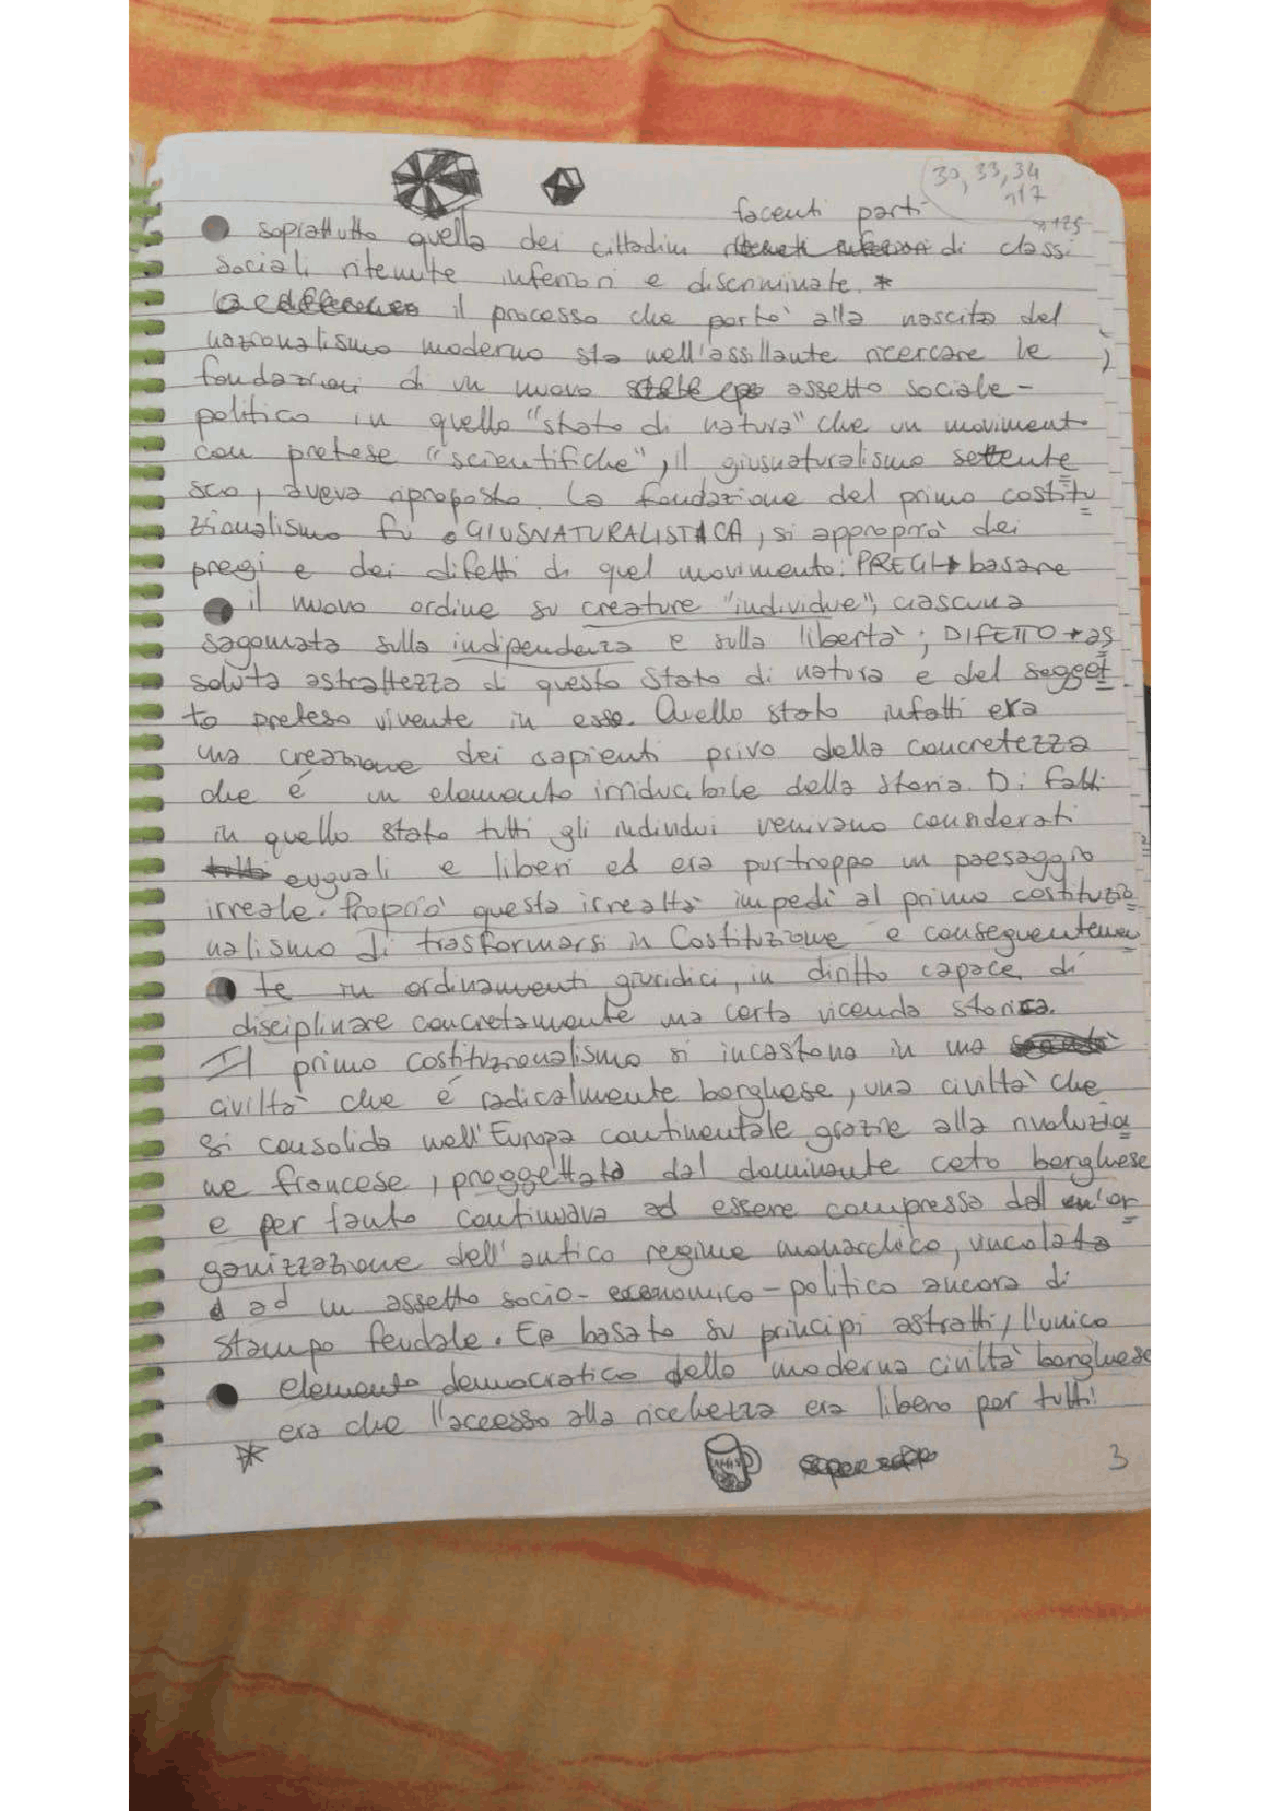 30, 33, 34
n17
n125
facenti parti
soprattutto quella dei cittadini di classi
sociali ritenute inferiori e discriminate. *
il processo che portò alla nascita del
nazionalismo moderno sta nell'assillante ricercare le
fondazioni di un nuovo assetto sociale-
politico in quello "stato di natura" che un moviment
con pretese "scientifiche", il giusnaturalismo settente
sco, aveva riproposto. La fondazione del primo costitu
zionalismo fu GIUSNATURALISTACA, si appropriò dei
pregi e dei difetti di quel movimento: PREGI→ basare
il nuovo ordine su creature "individue", ciascuna
sagomata sulla indipendenza e sulla libertà; DIFETTO → as
soluta astrattezza di questo Stato di natura e del sogget
to preteso vivente in esso. Quello stato infatti era
una creazione dei sapienti privo della concretezza
che é un elemento irriducibile della storia. Di fatti
in quello stato tutti gli individui venivano considerati
tutti euguali e liberi ed era purtroppo un paesaggio
irreale. Propriò questa irrealtà impedì al primo costituzio
nalismo di trasformarsi in Costituzione e conseguenteme
te in ordinamenti giuridici, in diritto capace di
disciplinare concretamente una certa vicenda storica.
Il primo costituzionalismo si incastona in una
civiltà che é radicalmente borghese, una civiltà che
si consolida nell'Europa continentale grazie alla rivoluzio
ne francese, proggettata dal dominante ceto borghese
e per tanto continuava ad essere compressa dall'or
ganizzazione dell'antico regime monarchico, vincolata
ad un assetto socio-economico-politico ancora di
stampo feudale. Era basato su principi astratti, l'unico
elemento democratico della moderna civiltà borghese
era che l'accesso alla ricchezza era libero per tutti!
*
3